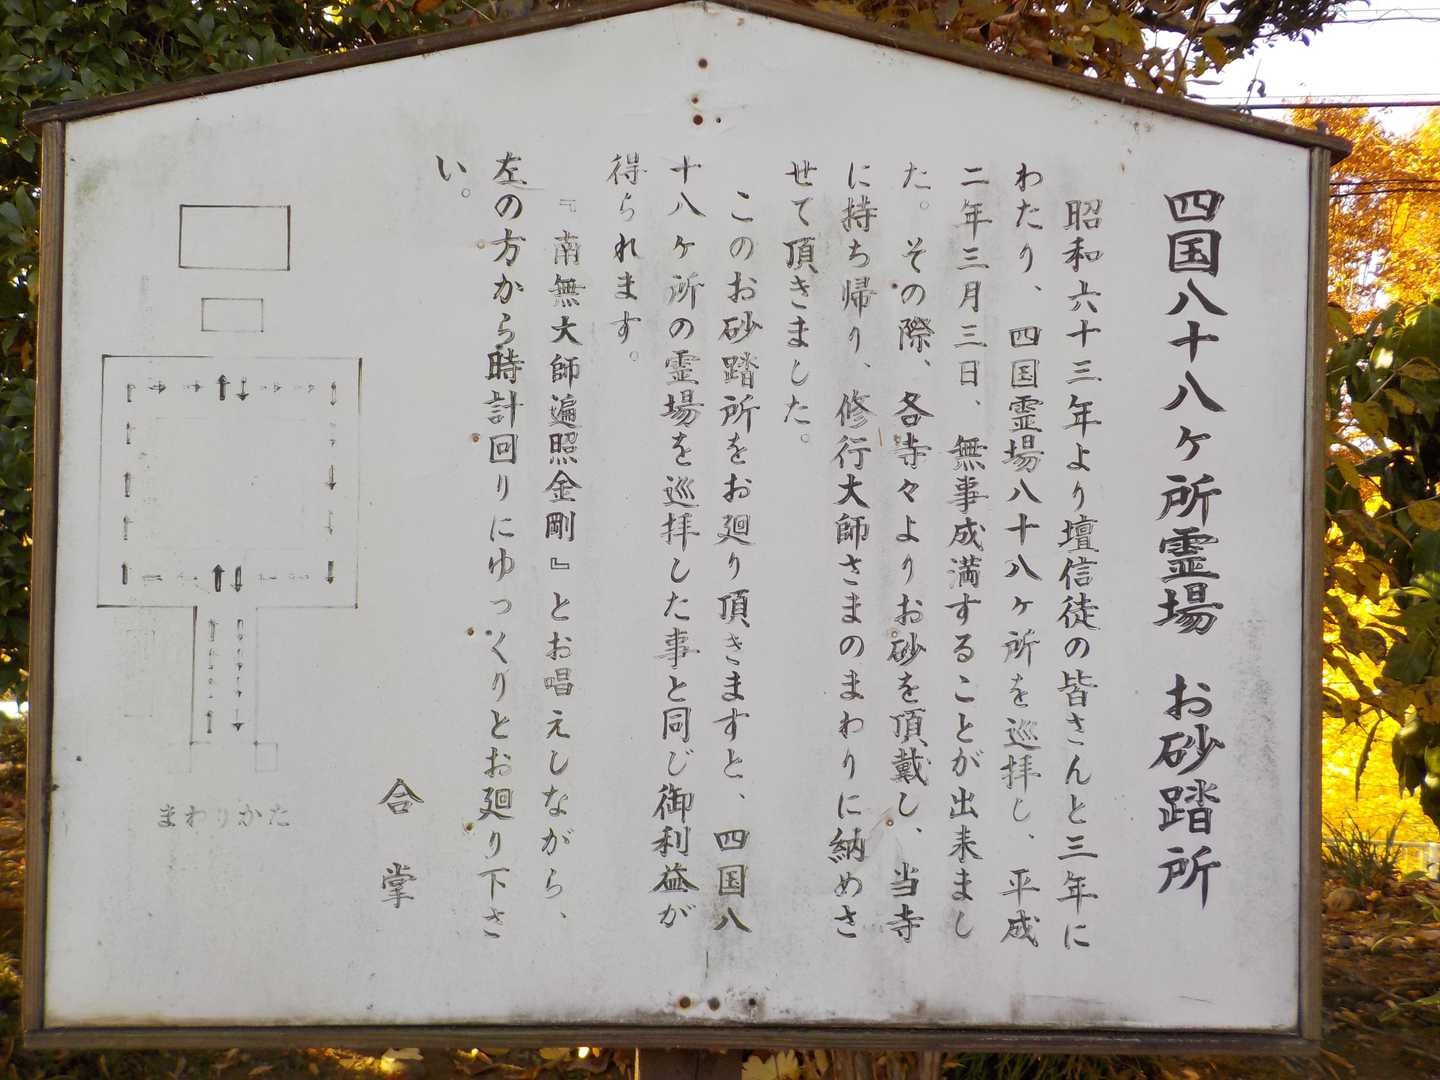 四国八十八ヶ所霊場　お砂踏所
昭和六十三年より壇信徒の皆さんと三年に
わたり、四国霊場八十八ヶ所を巡拝し、平成
二年三月三日、無事成満することが出来まし
た。その際、各寺々よりお砂を頂戴し、当寺
に持ち帰り、修行大師さまのまわりに納めさ
せて頂きました。
このお砂踏所をお廻り頂きますと、四国八
十八ヶ所の霊場を巡拝した事と同じ御利益が
得られます。
『南無大師遍照金剛』とお唱えしながら、
左の方から時計回りにゆっくりとお廻り下さ
い。
合掌
まわりかた